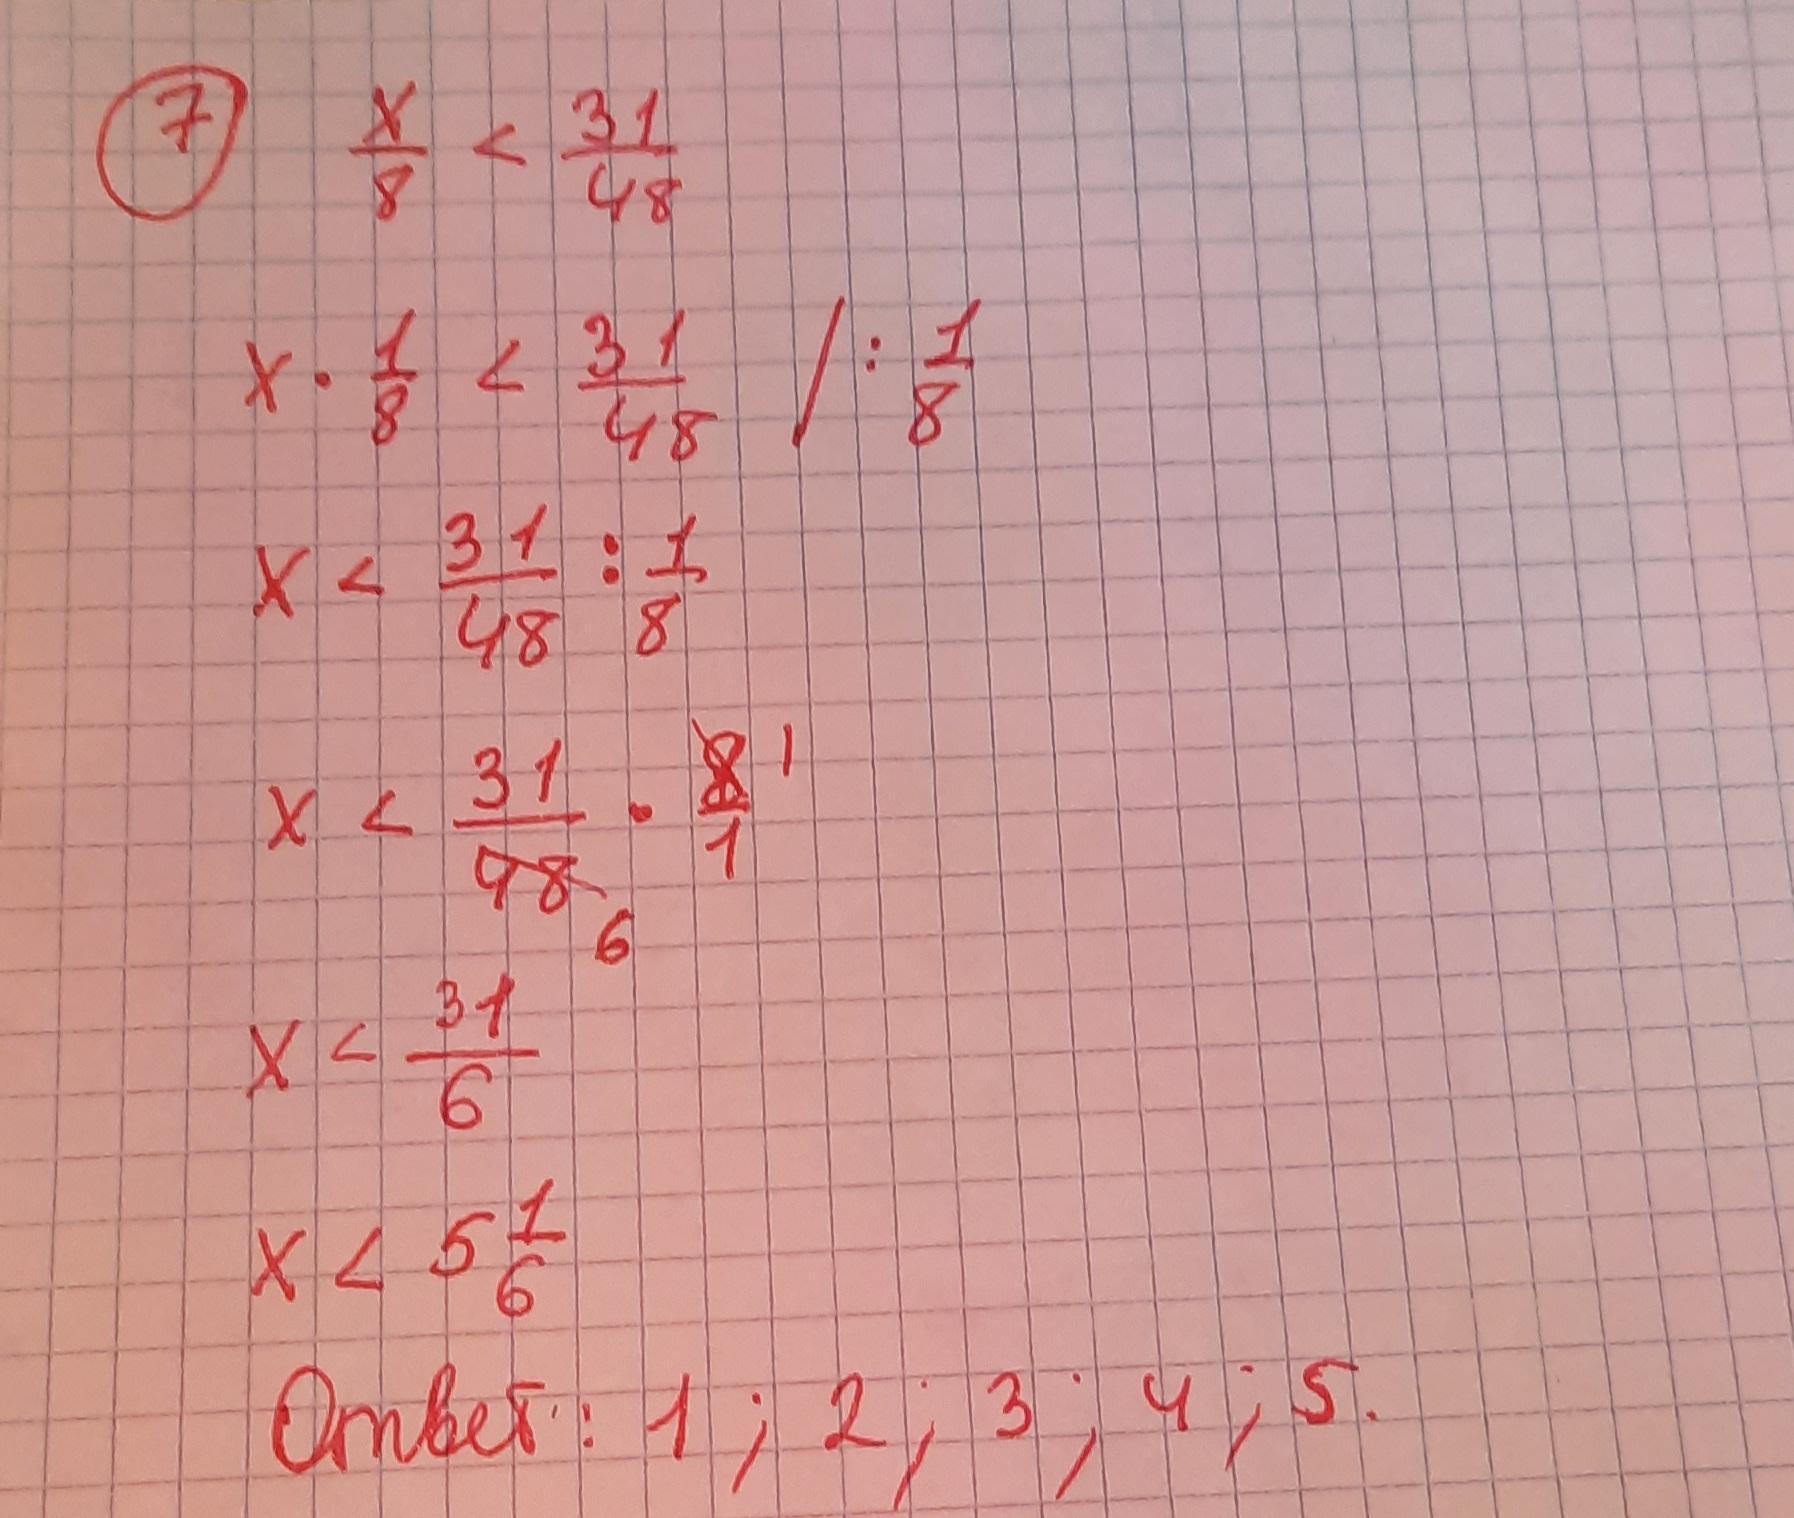 7 x/8 < 31/48
x · 1/8 < 31/48 / : 1/8
x < 31/48 : 1/8
x < 31/48 6 · 8/1 1
x < 31/6
x < 5 1/6
Ответ: 1; 2; 3; 4; 5.